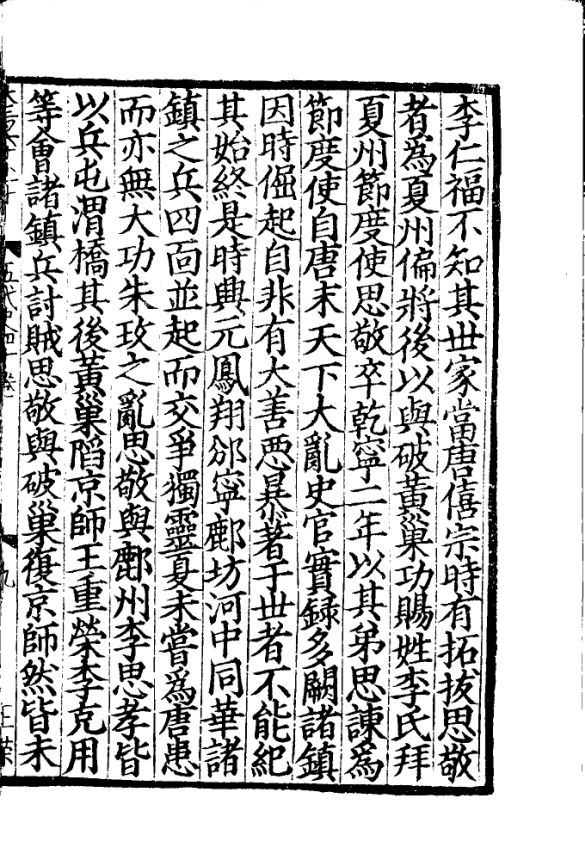 李仁福不知其世家當唐僖宗時有拓拔思敬
者爲夏州偏將後以與破黃巢功賜姓李氏拜
夏州節度使思敬卒乾寧二年以其弟思諫爲
節度使自唐末天下大亂史官實錄多闕諸鎮
因時倔起自非有大善惡暴著于世者不能紀
其始終是時興元鳳翔邠寧鄜坊河中同華諸
鎮之兵四面並起而交爭獨靈夏未嘗爲唐患
而亦無大功朱玫之亂思敬與鄜州李思孝皆
以兵屯渭橋其後黃巢陷京師王重榮李克用
等會諸鎮兵討賊思敬與破巢復京師然皆未